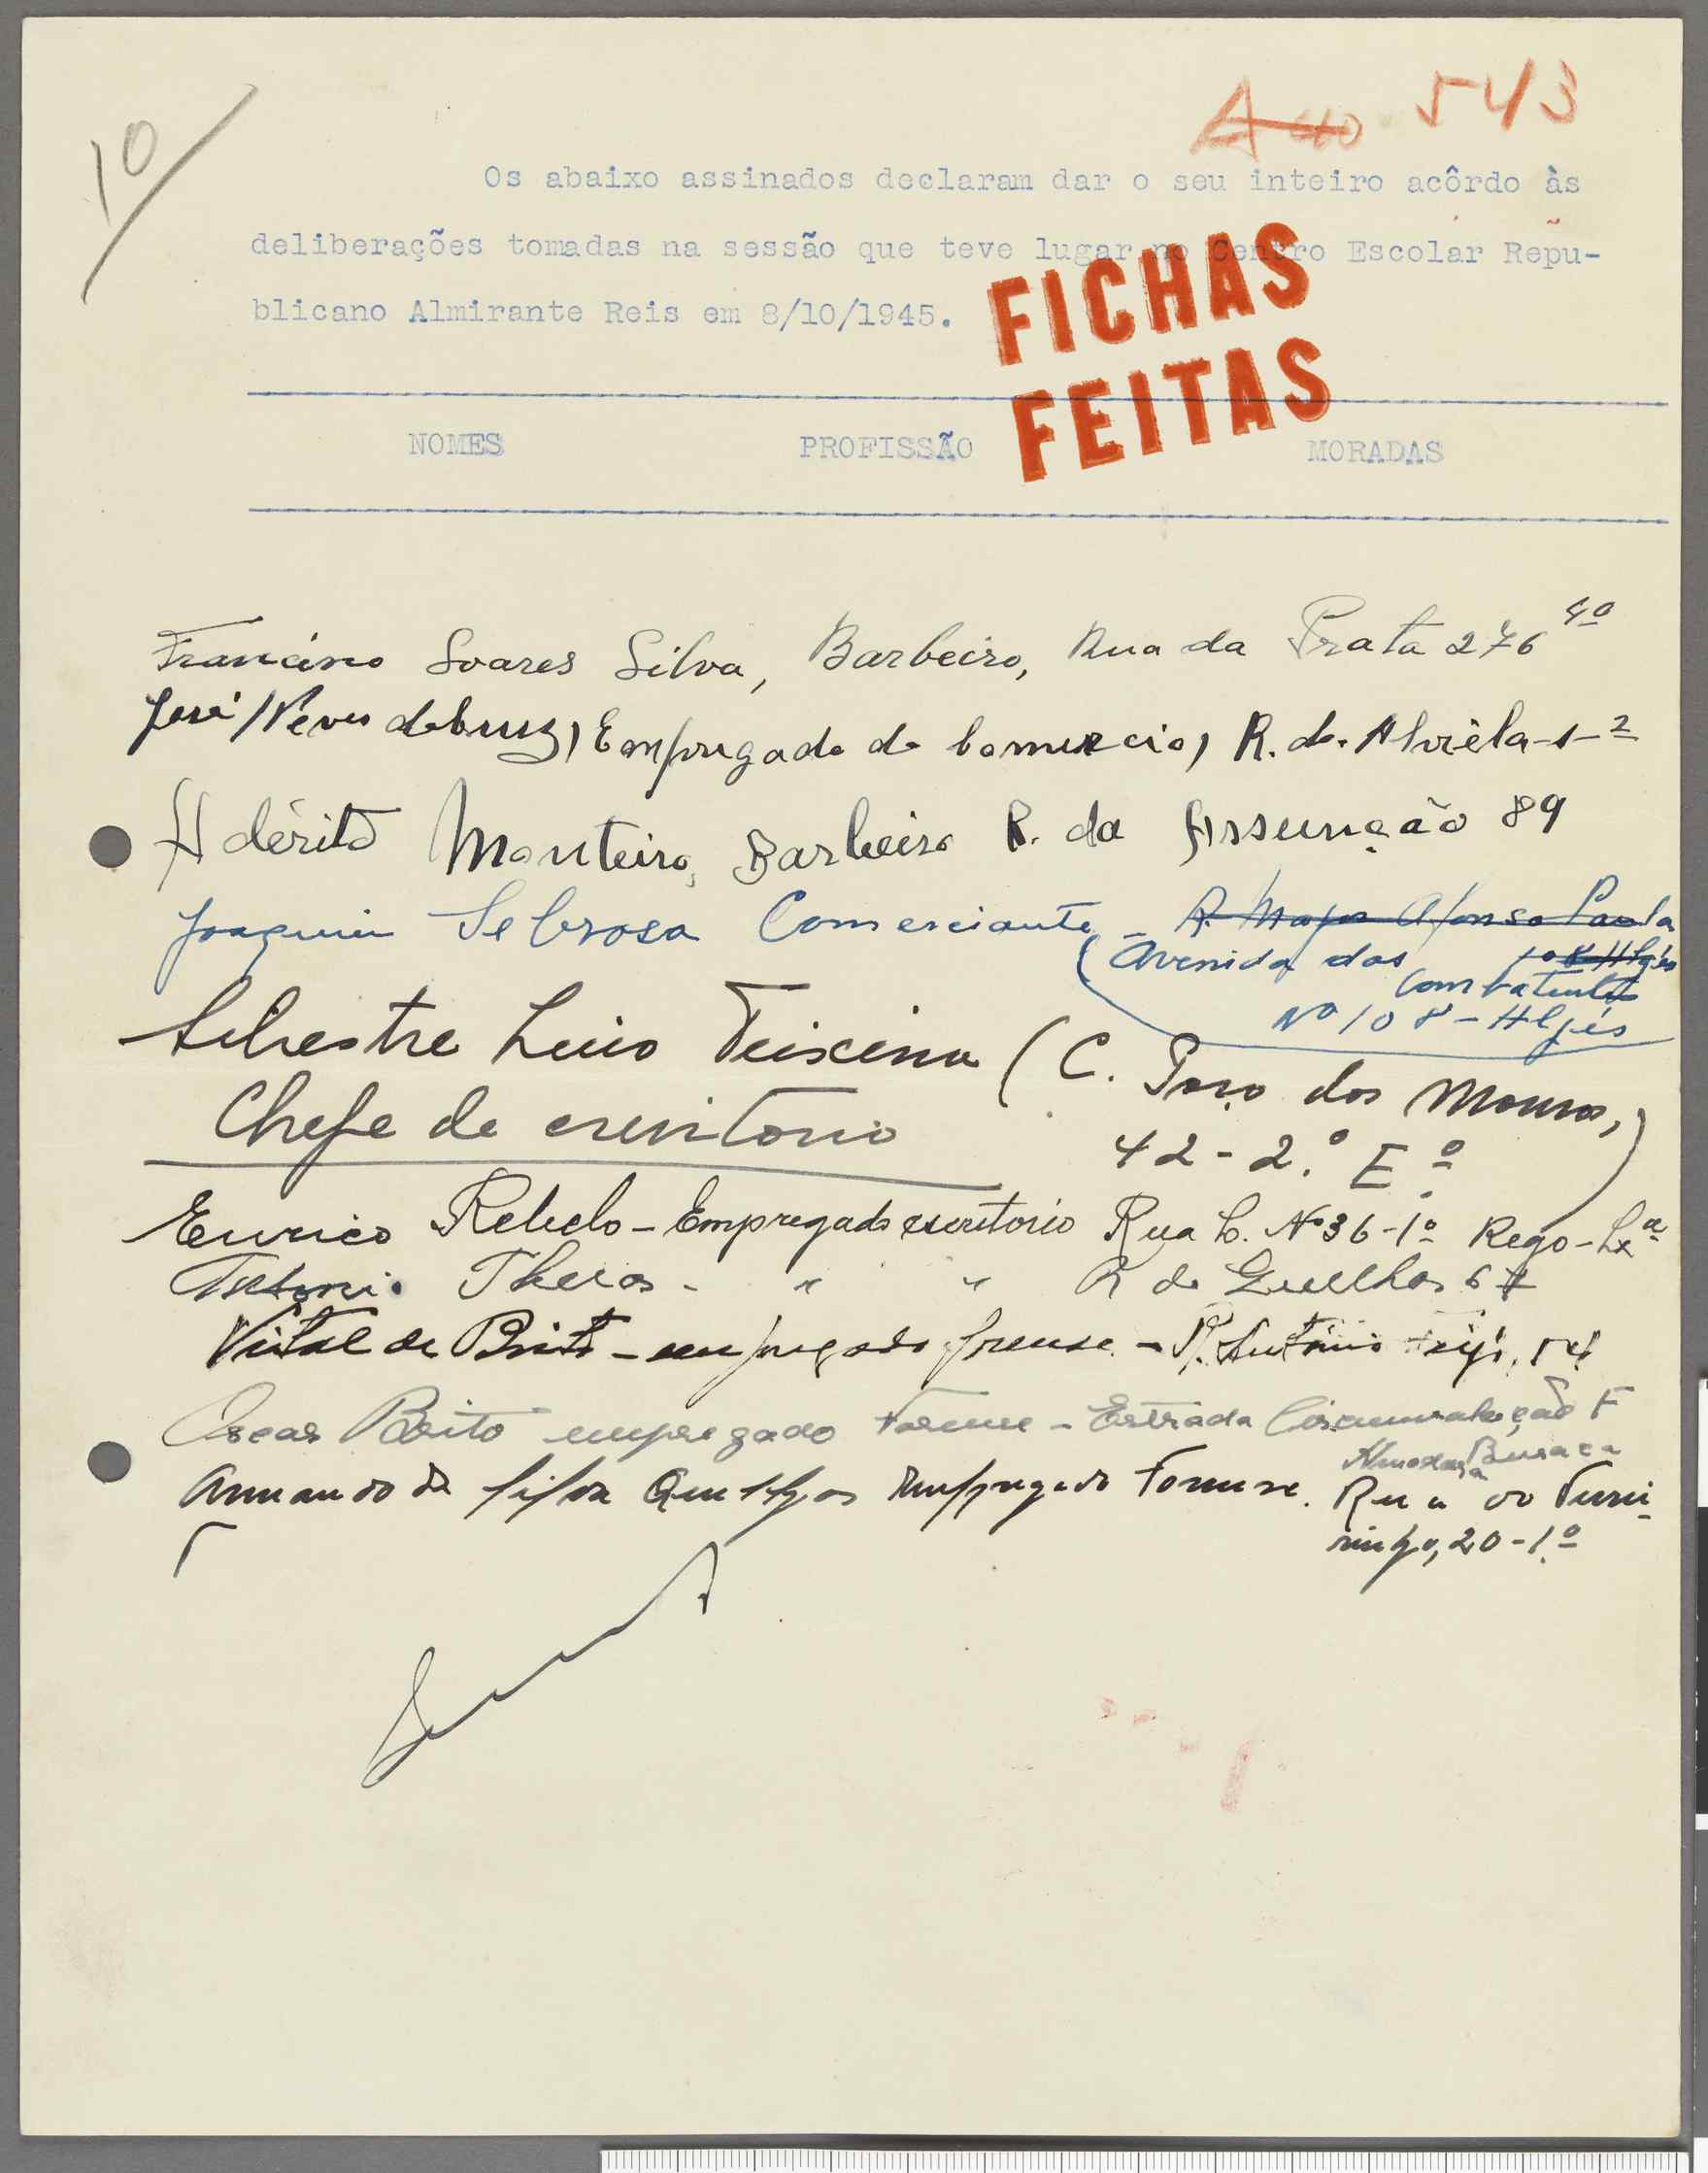 10
543
Os abaixo assinados declaram dar o seu inteiro acôrdo às
deliberações tomadas na sessão que teve lugar no Centro Escolar Repu-
blicano Almirante Reis em 8/10/1945.
FICHAS
FEITAS
NOMES PROFISSÃO MORADAS
Francisco Soares Silva, Barbeiro, Rua da Prata 276 4º
José Neves da Cruz, Empregado do Comercio, R. do Alviela-1-2
Adérito Monteiro, Barbeiro R. da Assunção 89
Joaquim Sebrosa Comerciante - R. Major Afonso Paula
108 Algés
(Avenida dos
Combatentes
Nº 108 - Algés
Silvestre Lucio Teixeira (C. Poço dos Mouros,
Chefe de escritorio 42-2.º Eº)
Eurico Rebelo - Empregado escritorio Rua L. Nº 36-1º Rego-Lxª
Antonio - " " R de Guelhas 67
Vital de Brito - empregado forense - R. António 54
Oscar Brito empregado Forense - Estrada Circunvalação F
Buraca
Armando da Silva empregado Forense. Rua do
20-1º